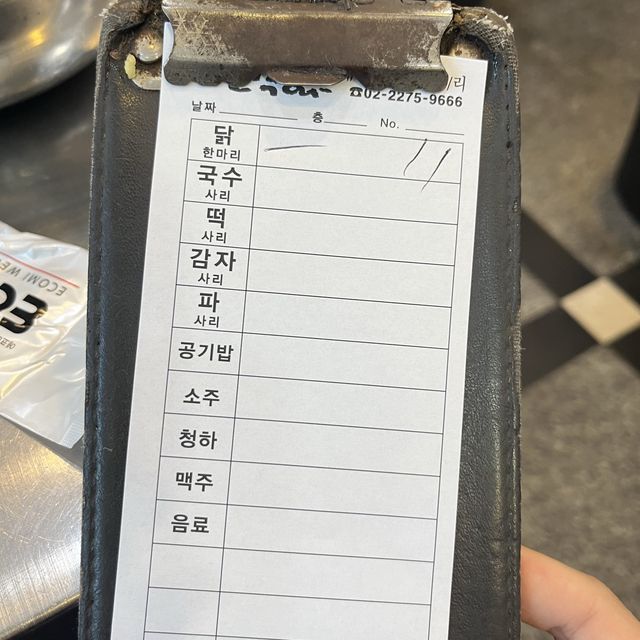 ☎02-2275-9666
날짜 층 No.
닭
한마리
11
국수
사리
떡
사리
감자
사리
파
사리
공기밥
소주
청하
맥주
음료
ECOMI WE